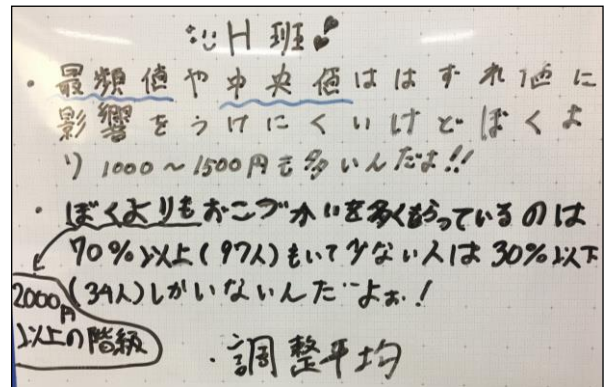 H班
・最頻値や中央値ははずれ値に
影響をうけにくいけどぼくよ
り1000~1500円も多いんだよ!!
・ぼくよりもおこづかいを多くもらっているのは
70%以上(97人)もいて少ない人は30%以下
(34人)しかいないんだよぉ!
2000円
以上の階級
・調整平均